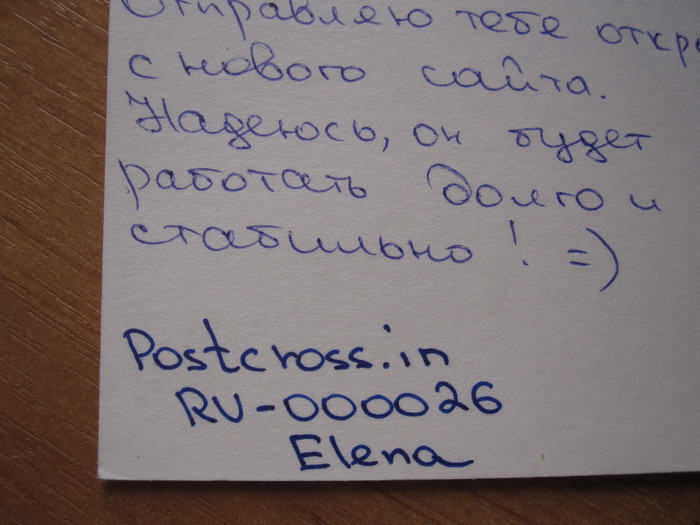 Отправляю тебе откры
с нового сайта.
Надеюсь, он будет
работать долго и
стабильно! =)
Postcross.in
RU-000026
Elena